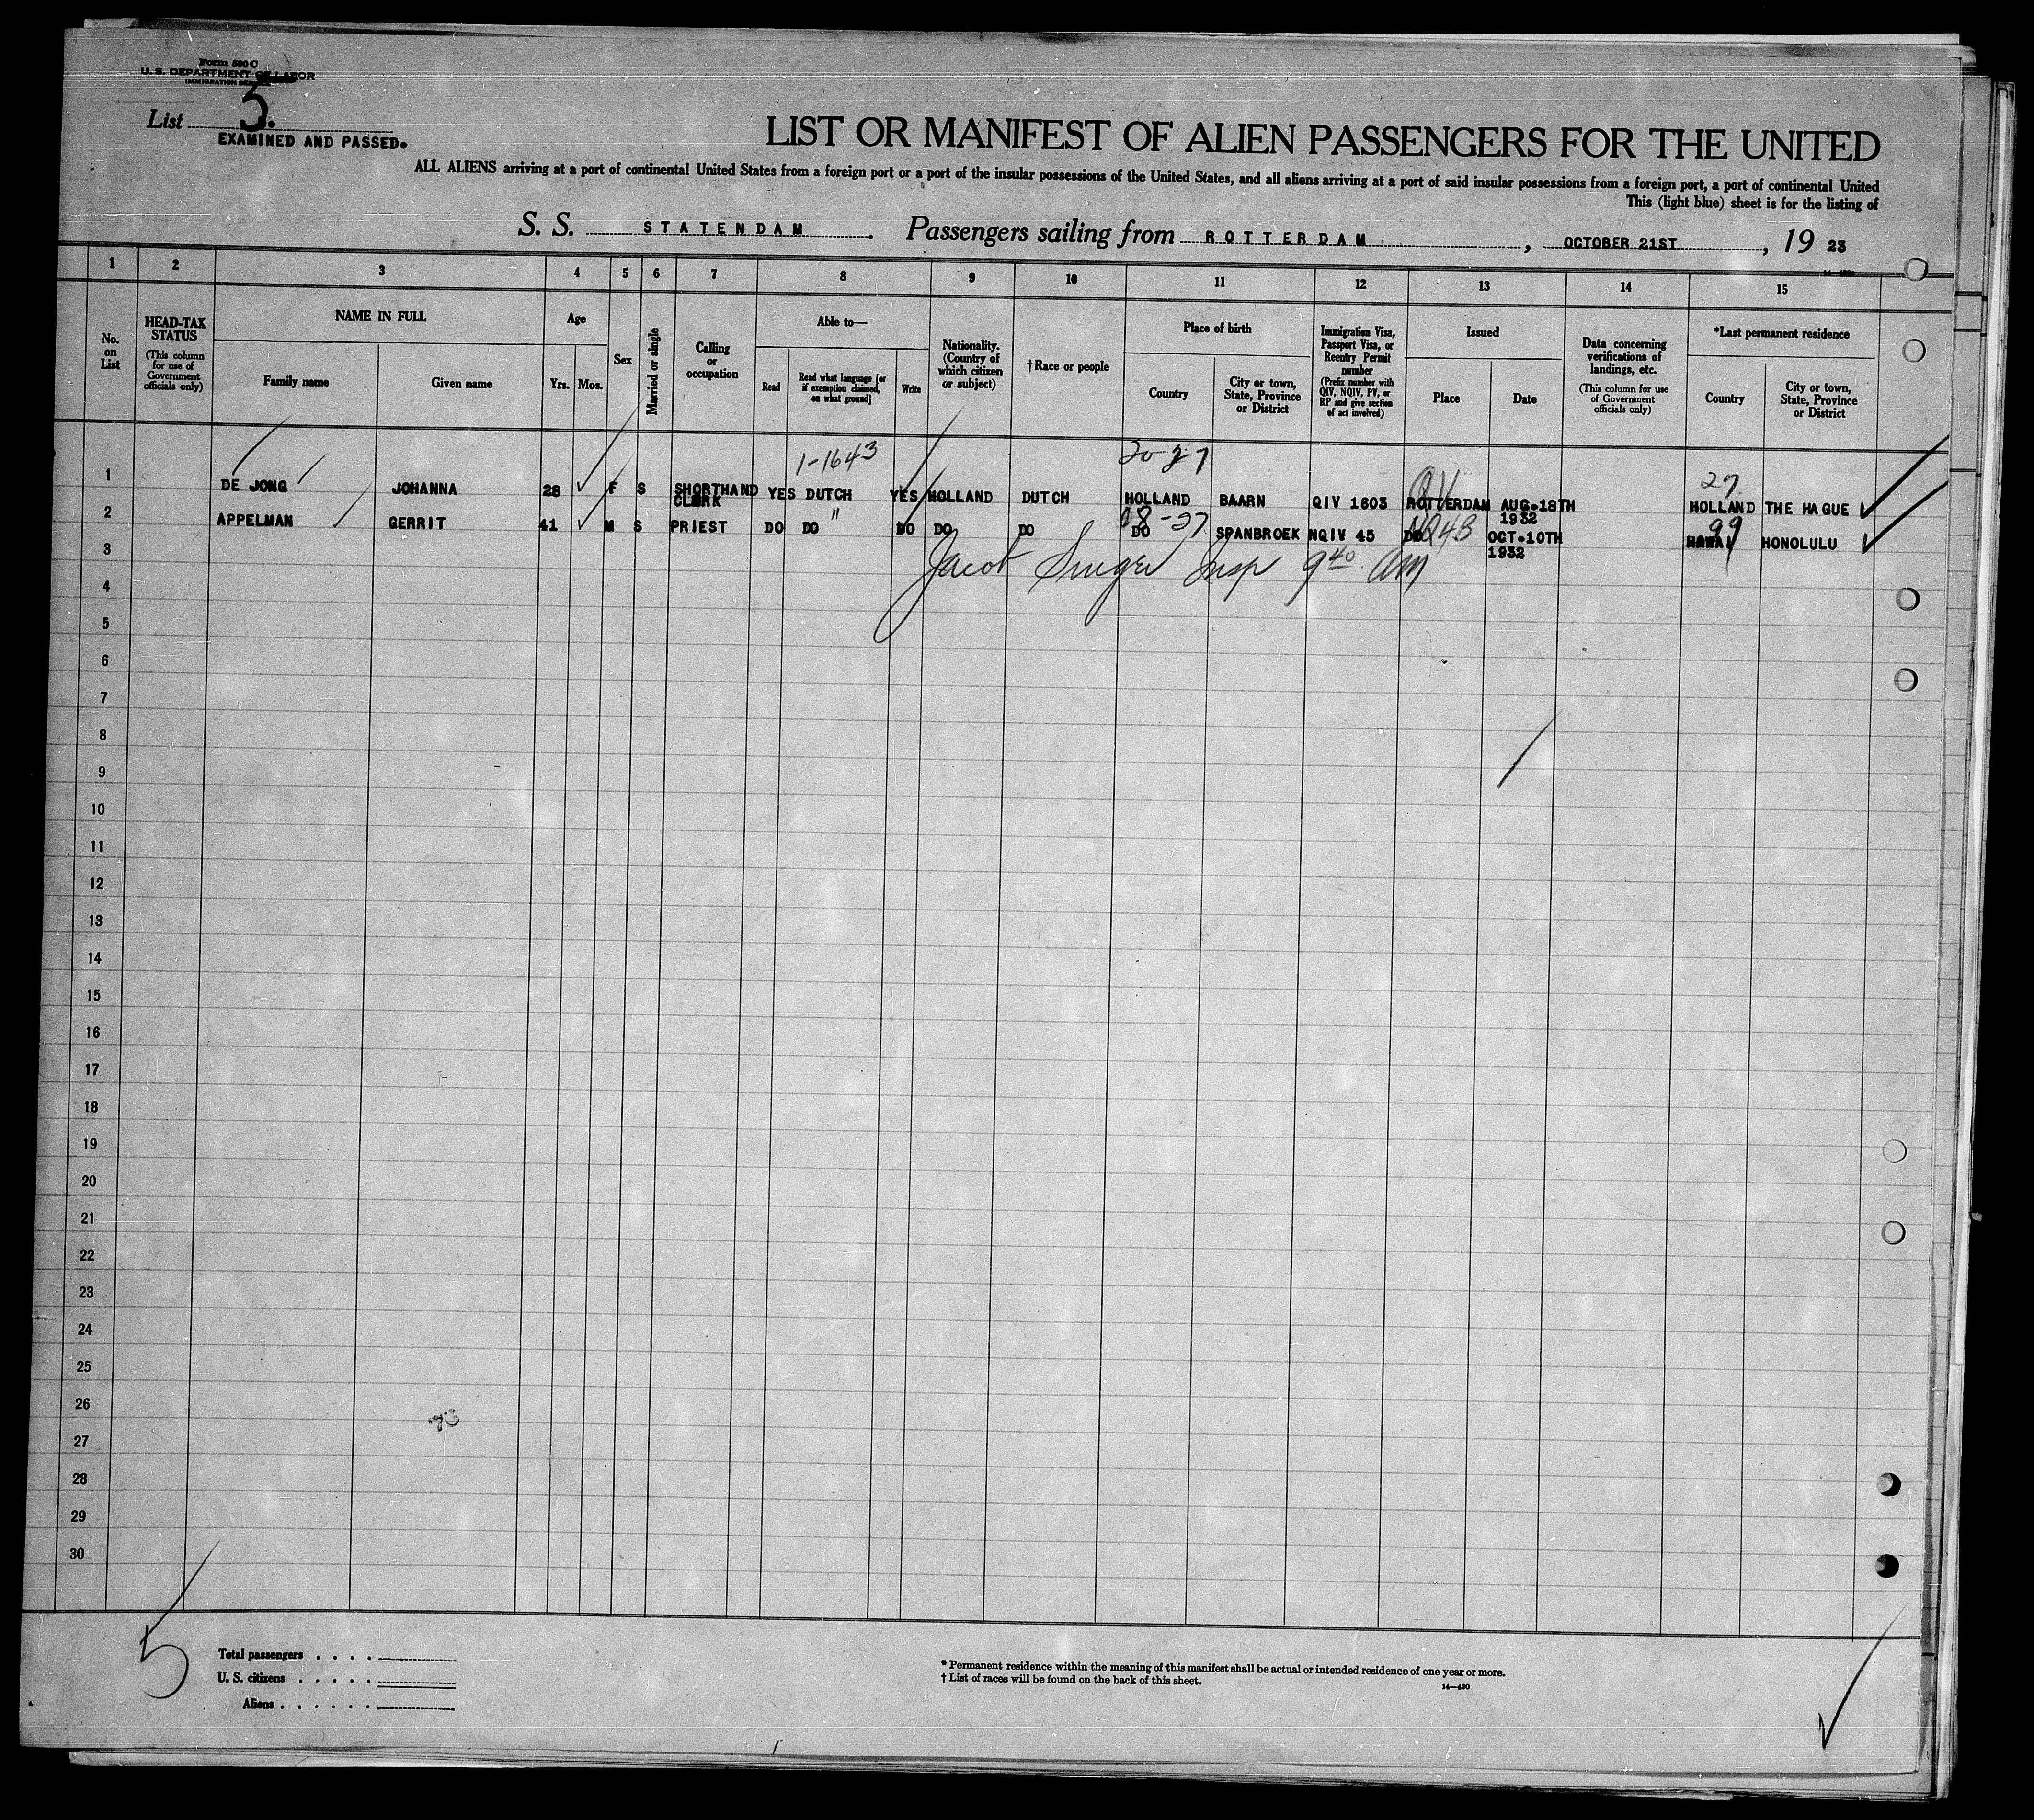 Form 500 C
U. S. DEPARTMENT OF LABOR
IMMIGRATION SERVICE
List 3.
EXAMINED AND PASSED.
LIST OR MANIFEST OF ALIEN PASSENGERS FOR THE UNITED
ALL ALIENS arriving at a port of continental United States from a foreign port or a port of the insular possessions of the United States, and all aliens arriving at a port of said insular possessions from a foreign port, a port of continental United
This (light blue) sheet is for the listing of
S. S. STATENDAM. Passengers sailing from ROTTERDAM, OCTOBER 21ST, 19 23
1 2 3 4 5 6 7 8 9 10 11 12 13 14 15
No. on List
HEAD-TAX STATUS (This column for use of Government officials only)
NAME IN FULL
Family name Given name
Age
Yrs. Mos.
Sex
Married or single
Calling or occupation
Able to—
Read Read what language [or if exemption claimed, on what ground] Write
Nationality. (Country of which citizen or subject)
†Race or people
Place of birth
Country City or town, State, Province or District
Immigration Visa, Passport Visa, or Reentry Permit number (Prefix number with QIV, NQIV, PV, or RP and give section of act involved)
Issued
Place Date
Data concerning verifications of landings, etc. (This column for use of Government officials only)
*Last permanent residence
Country City or town, State, Province or District
1-1643 20-27 27
1 DE JONG JOHANNA 28 F S SHORTHAND CLERK YES DUTCH YES HOLLAND DUTCH HOLLAND BAARN QIV 1603 ROTTERDAM AUG.18TH 1932 HOLLAND THE HAGUE
" 08-27 NQ4B 99
2 APPELMAN GERRIT 41 M S PRIEST DO DO DO DO DO DO SPANBROEK NQIV 45 DO OCT.10TH 1932 HAWAI HONOLULU
3
Jacob Singer Insp 9 40 am
4
5
6
7
8
9
10
11
12
13
14
15
16
17
18
19
20
21
22
23
24
25
26
27
28
29
30
5
Total passengers . . . .
U. S. citizens . . . . .
Aliens . . . . . .
* Permanent residence within the meaning of this manifest shall be actual or intended residence of one year or more.
† List of races will be found on the back of this sheet.
14—430